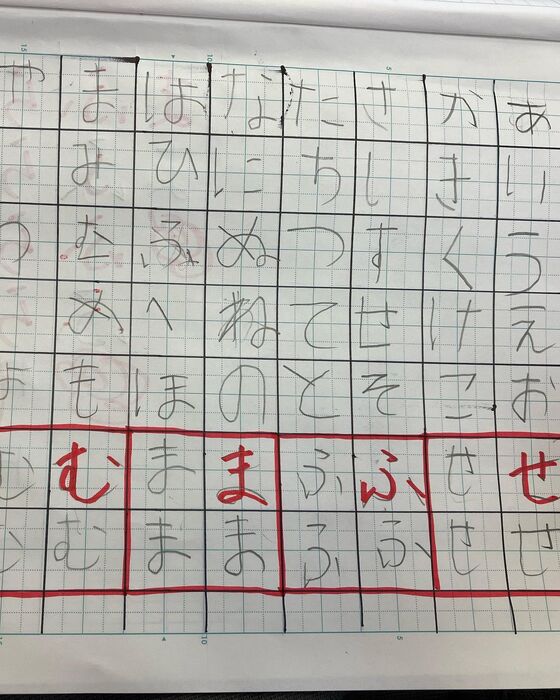 あいうえお
かきくけこ
さしすせそ
たちつてと
なにぬねの
はひふへほ
まみむめも
や
せせ
せせ
ふふ
ふふ
まま
まま
むむ
む
5
10
15
5
10